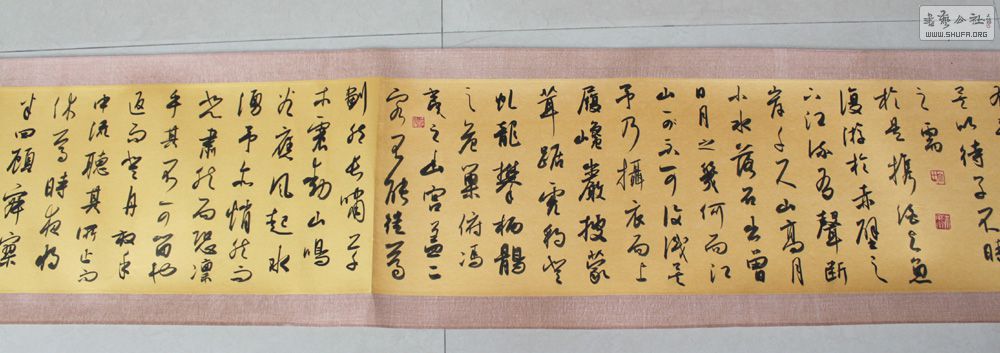 矣以待子不時
之需
於是攜酒與魚
復游於赤壁之
下江流有聲斷
岸千尺山高月
小水落石出曾
日月之幾何而江
山不可復識矣
予乃攝衣而上
履巉巖披蒙
茸踞虎豹登
虬龍攀栖鶻
之危巢俯馮
夷之幽宮蓋二
客不能從焉
劃然長嘯草
木震動山鳴
谷應風起水
涌予亦悄然而
悲肅然而恐凜
乎其不可留也
返而登舟放乎
中流聽其所止而
休焉時夜將
半四顧寂寥
書藝公社
WWW.SHUFA.ORG